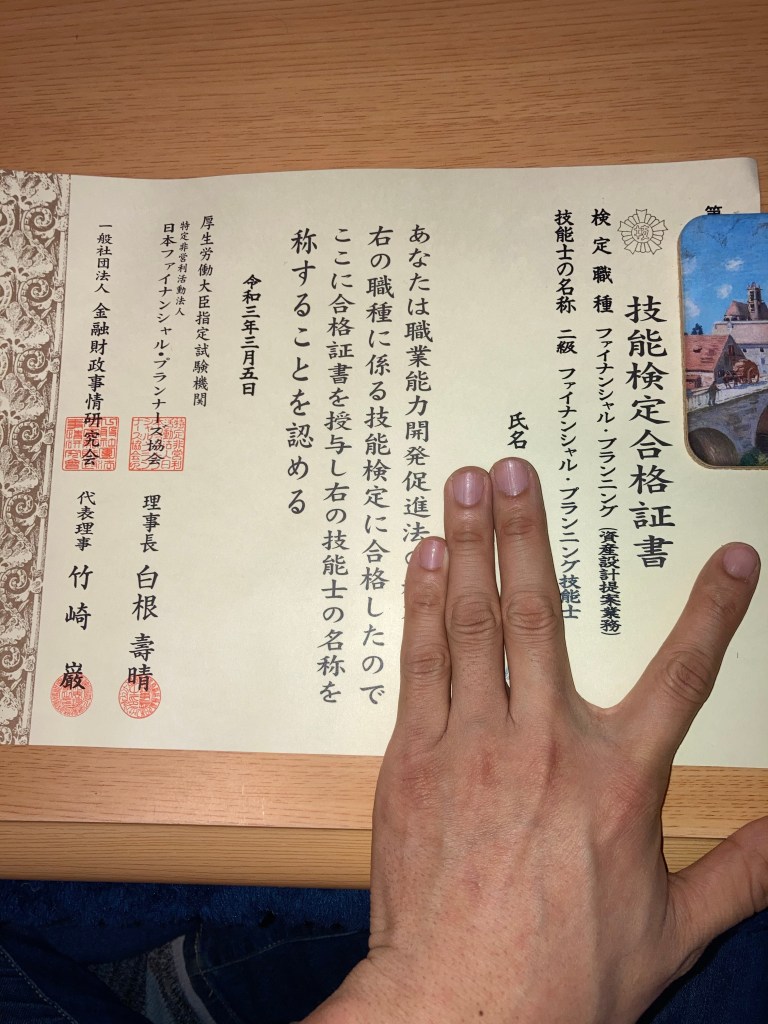 第
技能検定合格証書
検定職種 ファイナンシャル・プランニング(資産設計提案業務)
技能士の名称 二級 ファイナンシャル・プランニング技能士
氏名
あなたは職業能力開発促進法の
右の職種に係る技能検定に合格したので
ここに合格証書を授与し右の技能士の名称を
称することを認める
令和三年三月五日
厚生労働大臣指定試験機関
特定非営利活動法人
日本ファイナンシャル・プランナーズ協会 理事長 白根壽晴
一般社団法人 金融財政事情研究会 代表理事 竹崎巌